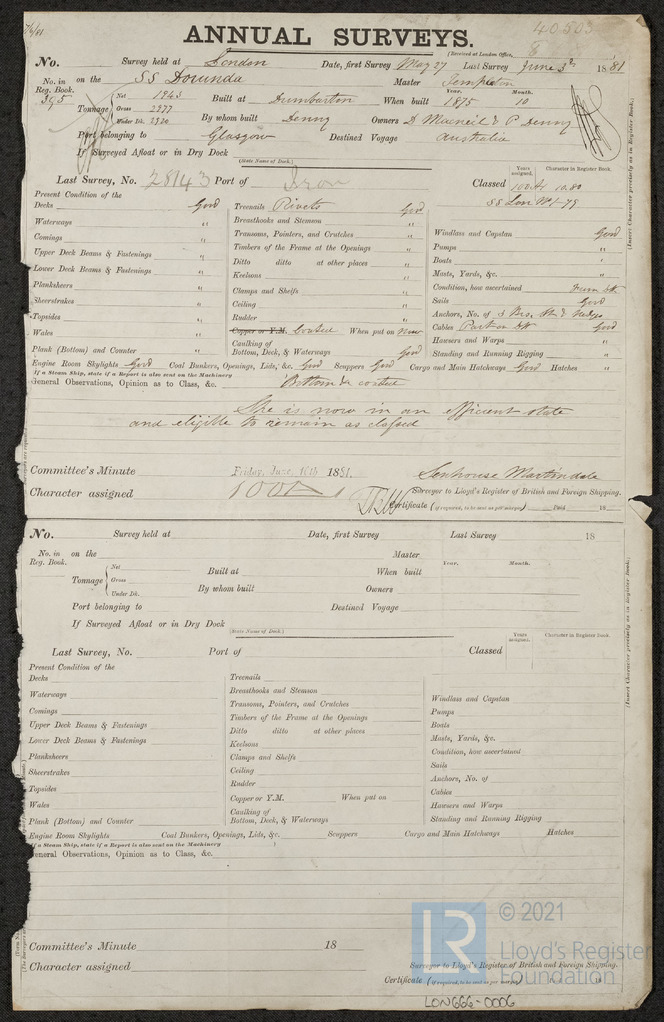 7/6/81
40503
8
ANNUAL SURVEYS.
(Received at London Office,
No. Survey held at London Date, first Survey May 27 Last Survey June 3rd 1881
No. in Reg. Book. 395 on the SS Dorunda Master Templeton
Tonnage Net 1943 Gross 2977 Under Dk. 2920 Built at Dumbarton When built Year. 1875 Month. 10
By whom built Denny Owners D Macneil & P Denny
Port belonging to Glasgow Destined Voyage Australia
If Surveyed Afloat or in Dry Dock
(State Name of Dock.)
Last Survey, No. 28143 Port of Iron Classed Years assigned. 100A1 Character in Register Book. 10,80
SS Lon No1-79
(Insert Character precisely as in Register Book.)
Present Condition of the
Decks Good
Waterways "
Comings "
Upper Deck Beams & Fastenings "
Lower Deck Beams & Fastenings "
Planksheers "
Sheerstrakes "
Topsides "
Wales "
Plank (Bottom) and Counter "
Treenails Rivets Good
Breasthooks and Stemson "
Transoms, Pointers, and Crutches "
Timbers of the Frame at the Openings "
Ditto ditto at other places "
Keelsons "
Clamps and Shelfs "
Ceiling "
Rudder "
Copper or Y.M. Coated When put on Now
Caulking of Bottom, Deck, & Waterways Good
Windlass and Capstan Good
Pumps "
Boats "
Masts, Yards, &c. "
Condition, how ascertained From Dk
Sails Good
Anchors, No. of 3 Brs, St & Kedge
Cables Part on Dk Good
Hawsers and Warps "
Standing and Running Rigging "
Engine Room Skylights Good Coal Bunkers, Openings, Lids, &c. Good Scuppers Good Cargo and Main Hatchways Good Hatches "
If a Steam Ship, state if a Report is also sent on the Machinery
General Observations, Opinion as to Class, &c. Bottom &c coated
She is now in an efficient state
and eligible to remain as classed
Committee's Minute Friday, June 10th 1881.
Character assigned 100A1
Senhouse Martindale
Surveyor to Lloyd's Register of British and Foreign Shipping.
Certificate (if required, to be sent as per margin) 18
No. Survey held at Date, first Survey Last Survey 18
No. in Reg. Book. on the Master
Tonnage Net Gross Under Dk. Built at When built Year. Month.
By whom built Owners
Port belonging to Destined Voyage
If Surveyed Afloat or in Dry Dock
(State Name of Dock.)
Last Survey, No. Port of Classed Years assigned. Character in Register Book.
(Insert Character precisely as in Register Book.)
Present Condition of the
Decks
Waterways
Comings
Upper Deck Beams & Fastenings
Lower Deck Beams & Fastenings
Planksheers
Sheerstrakes
Topsides
Wales
Plank (Bottom) and Counter
Treenails
Breasthooks and Stemson
Transoms, Pointers, and Crutches
Timbers of the Frame at the Openings
Ditto ditto at other places
Keelsons
Clamps and Shelfs
Ceiling
Rudder
Copper or Y.M. When put on
Caulking of Bottom, Deck, & Waterways
Windlass and Capstan
Pumps
Boats
Masts, Yards, &c.
Condition, how ascertained
Sails
Anchors, No. of
Cables
Hawsers and Warps
Standing and Running Rigging
Engine Room Skylights Coal Bunkers, Openings, Lids, &c. Scuppers Cargo and Main Hatchways Hatches
If a Steam Ship, state if a Report is also sent on the Machinery
General Observations, Opinion as to Class, &c.
Committee's Minute 18
Character assigned
Surveyor to Lloyd's Register of British and Foreign Shipping.
Certificate (if required, to be sent as per margin) 18
LR © 2021
Lloyd's Register
Foundation
LON666-0006